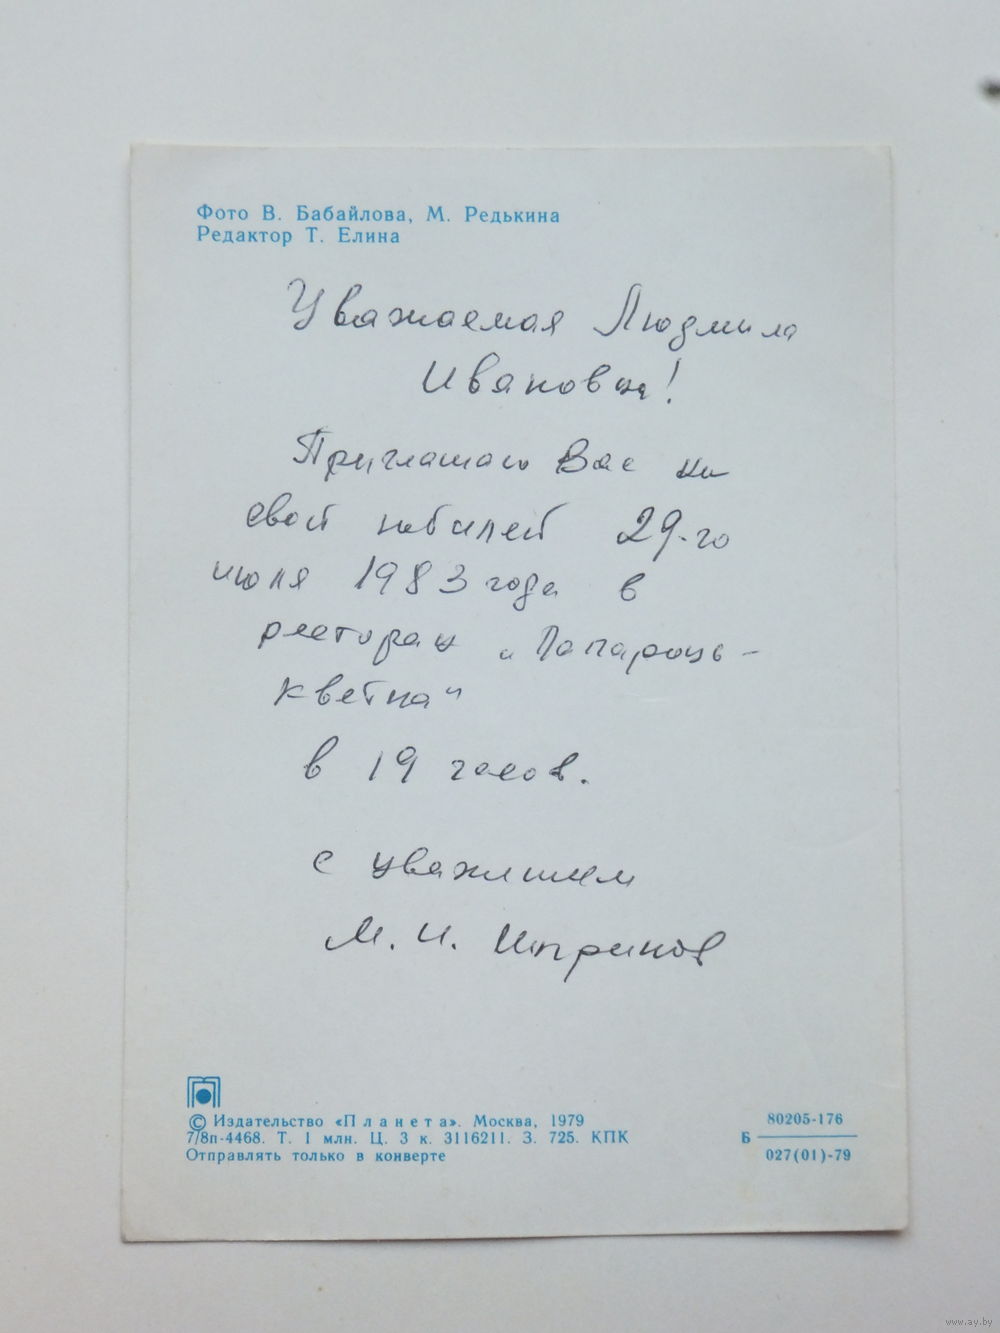 Фото В. Бабайлова, М. Редькина
Редактор Т. Елина
Уважаемая Людмила
Ивановна!
Приглашаю Вас на
свой юбилей 29-го
июля 1983 года в
ресторан „Папараць-
кветка"
в 19 часов.
с уважением
М. И.
© Издательство «Планета». Москва, 1979
7/8п-4468. Т. 1 млн. Ц. 3 к. 3116211. З. 725. КПК
Отправлять только в конверте
Б 80205-176
027(01)-79
www.ay.by